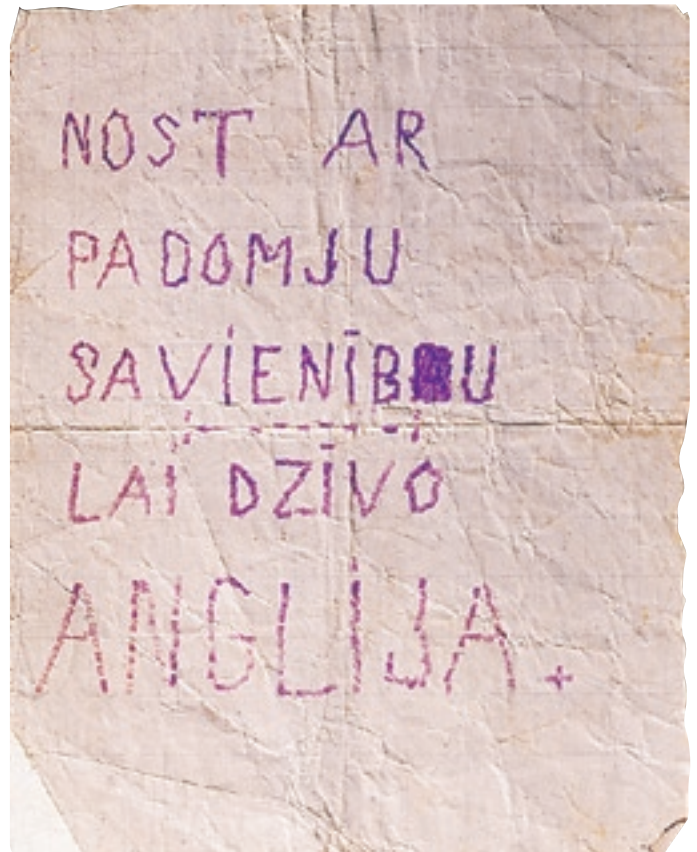 NOST AR
PADOMJU
SAVIENĪBU
LAI DZĪVO
ANGLIJA.